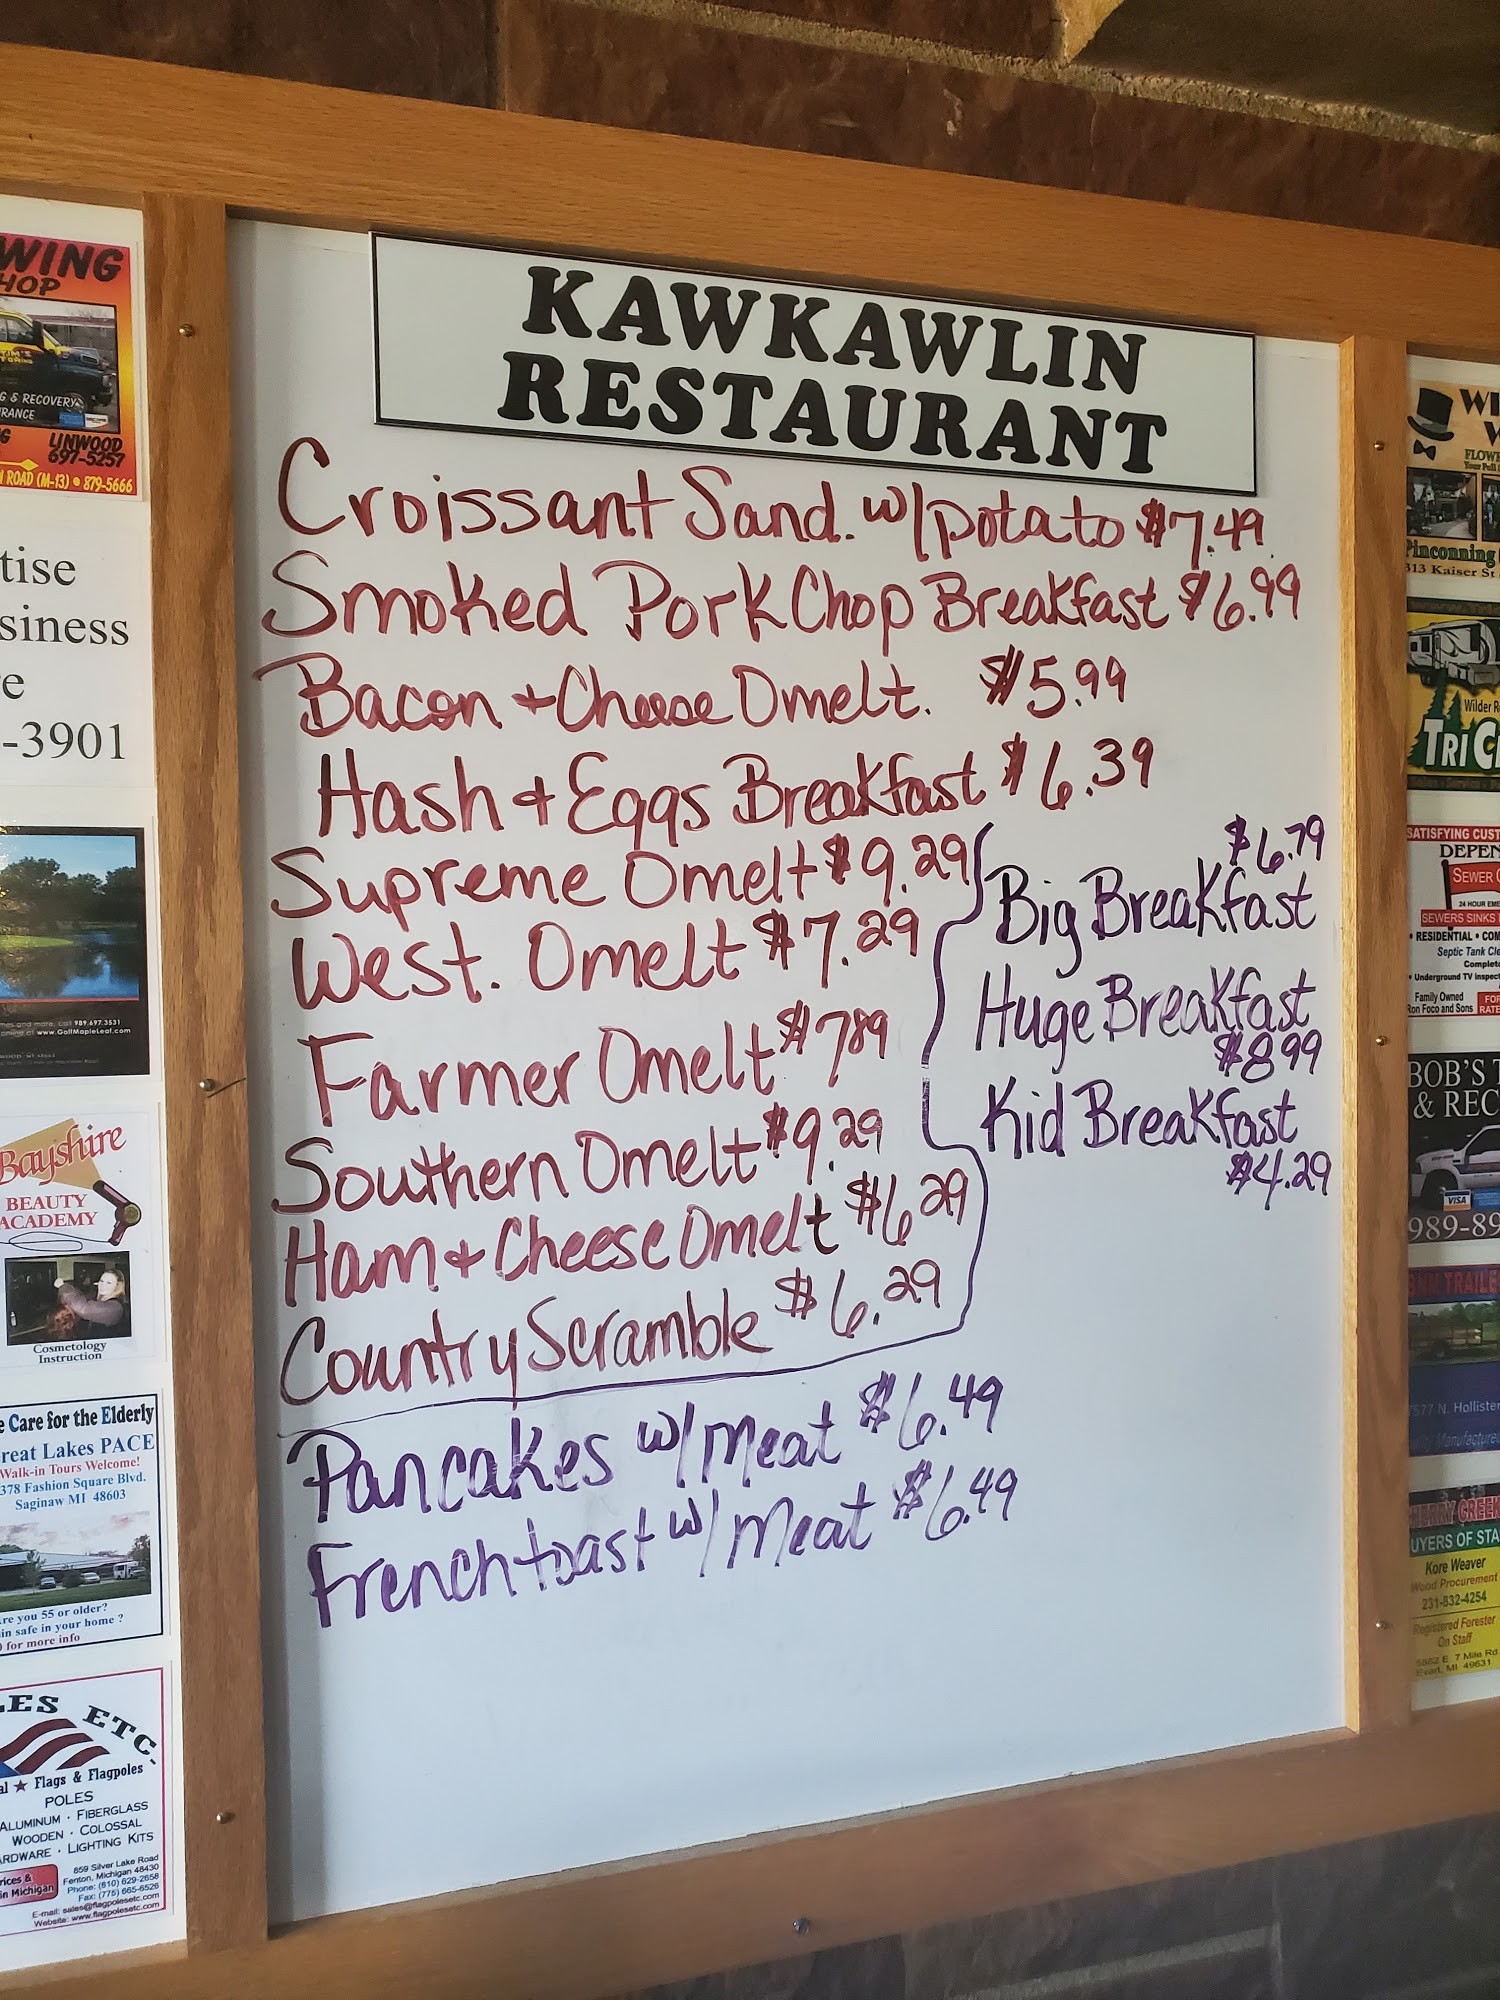 KAWKAWLIN
RESTAURANT
Croissant Sand. w/potato $7.49
Smoked Pork Chop Breakfast $6.99
Bacon + Cheese Omelt. $5.99
Hash + Eggs Breakfast $6.39
Supreme Omelt $9.29
West. Omelt $7.29
Farmer Omelt $789
Southern Omelt $9.29
Ham + Cheese Omelt $6.29
Country Scramble $6.29
Pancakes w/meat $6.49
French toast w/meat $6.49
$6.79
Big Breakfast
Huge Breakfast
$8.99
Kid Breakfast
$4.29
WING
HOP
G & RECOVERY
RANCE
LINWOOD
697-5257
ROAD (M-13) • 879-5666
tise
siness
e
-3901
989.697.3531
www.GolfMapleLeaf.com
Bayshire
BEAUTY
ACADEMY
Cosmetology
Instruction
e Care for the Elderly
reat Lakes PACE
Walk-in Tours Welcome!
378 Fashion Square Blvd.
Saginaw MI 48603
re you 55 or older?
in safe in your home ?
for more info
LES ETC.
al ★ Flags & Flagpoles
POLES
ALUMINUM · FIBERGLASS
WOODEN · COLOSSAL
ARDWARE · LIGHTING KITS
rices &
in Michigan
859 Silver Lake Road
Fenton, Michigan 48430
Phone: (810) 629-2658
Fax: (775) 665-6526
E-mail: sales@flagpolesetc.com
Website: www.flagpolesetc.com
WI
W
FLOW
Your Full
Pinconning
313 Kaiser St
Wilder R
TRI C
SATISFYING CUST
DEPEN
SEWER
24 HOUR EME
SEWERS SINKS
• RESIDENTIAL • COM
Septic Tank Cle
Complete
• Underground TV Inspect
Family Owned
Ron Foco and Sons
FOR
RATE
BOB'S T
& REC
VISA
989-89
TRAILE
7577 N. Hollister
CHERRY CREEK
UYERS OF STA
Kore Weaver
Wood Procurement
231-832-4254
Registered Forester
On Staff
5882 E 7 Mile Rd
Evart, MI 49631